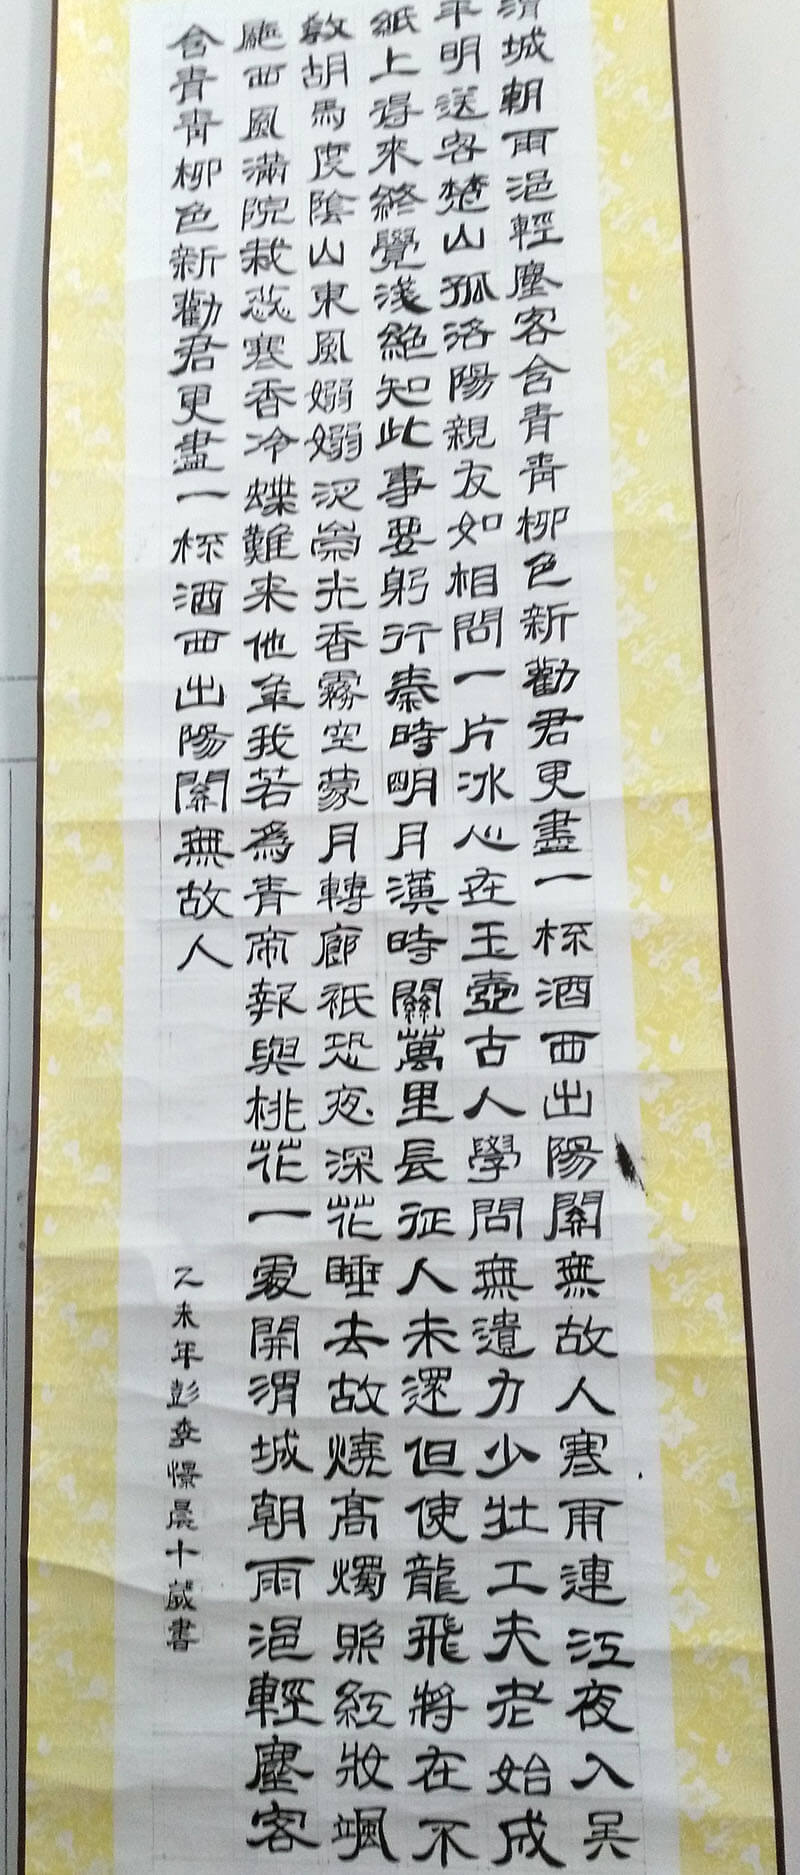 渭城朝雨浥輕塵客舍青青柳色新勸君更盡一杯酒西出陽關無故人寒雨連江夜入吳
平明送客楚山孤洛陽親友如相問一片冰心在玉壺古人學問無遺力少壯工夫老始成
紙上得來終覺淺絕知此事要躬行秦時明月漢時關萬里長征人未還但使龍飛將在不
教胡馬度陰山東風嫋嫋泛崇光香霧空蒙月轉廊衹恐夜深花睡去故燒高燭照紅妝颯
颯西風滿院栽蕊寒香冷蝶難來他年我若為青帝報與桃花一處開渭城朝雨浥輕塵客
舍青青柳色新勸君更盡一杯酒西出陽關無故人
乙未年彭李憬晨十歲書